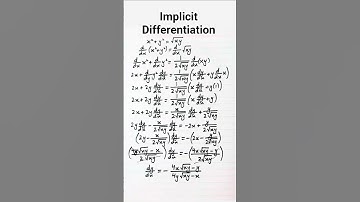 Implicit
Differentiation
x² + y² = √xy
d/dx (x² + y²) = d/dx √xy
d/dx x² + d/dx y² = 1/(2√xy) d/dx (xy)
2x + d/dy y² dy/dx = 1/(2√xy) (x dy/dx + y d/dx x)
2x + 2y dy/dx = 1/(2√xy) (x dy/dx + y(1))
2x + 2y dy/dx = 1/(2√xy) (x dy/dx + y)
2x + 2y dy/dx = x/(2√xy) dy/dx + y/(2√xy)
2y dy/dx - x/(2√xy) dy/dx = -2x + y/(2√xy)
(2y - x/(2√xy)) dy/dx = -(2x - y/(2√xy))
((4y√xy - x)/(2√xy)) dy/dx = -((4x√xy - y)/(2√xy))
dy/dx = - (4x√xy - y)/(4y√xy - x)